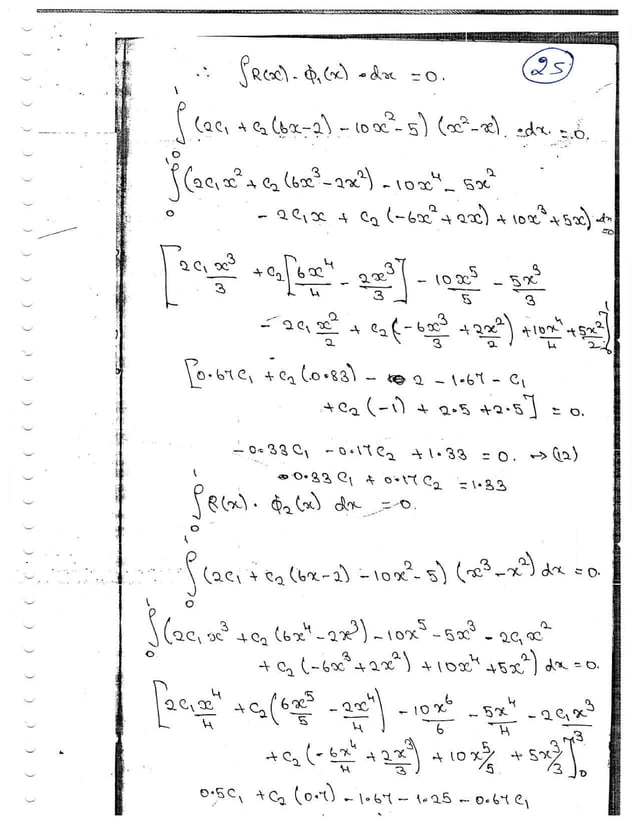 25
∴ ∫R(x). ϕ₁(x) . dx = 0.
∫₀¹ (2c₁ + c₂(6x-2) - 10x² - 5) (x² - x). dx = 0.
∫₀¹ (2c₁x² + c₂(6x³ - 2x²) - 10x⁴ - 5x²
- 2c₁x + c₂(-6x² + 2x) + 10x³ + 5x) dx = 0
[2c₁x³/3 + c₂[6x⁴/4 - 2x³/3] - 10x⁵/5 - 5x³/3
- 2c₁x²/2 + c₂(-6x³/3 + 2x²/2) + 10x⁴/4 + 5x²/2]₀¹
[0.67c₁ + c₂(0.83) - 2 - 1.67 - c₁
+ c₂(-1) + 2.5 + 2.5] = 0.
-0.33c₁ - 0.17c₂ + 1.33 = 0. → (12)
0.33c₁ + 0.17c₂ = 1.33
∫₀¹ R(x). ϕ₂(x) dx = 0.
∫₀¹ (2c₁ + c₂(6x-2) - 10x² - 5) (x³ - x²) dx = 0.
∫₀¹ (2c₁x³ + c₂(6x⁴ - 2x³) - 10x⁵ - 5x³ - 2c₁x²
+ c₂(-6x³ + 2x²) + 10x⁴ + 5x²) dx = 0.
[2c₁x⁴/4 + c₂(6x⁵/5 - 2x⁴/4) - 10x⁶/6 - 5x⁴/4 - 2c₁x³/3
+ c₂(-6x⁴/4 + 2x³/3) + 10x⁵/5 + 5x³/3]₀
0.5c₁ + c₂(0.7) - 1.67 - 1.25 - 0.67c₁